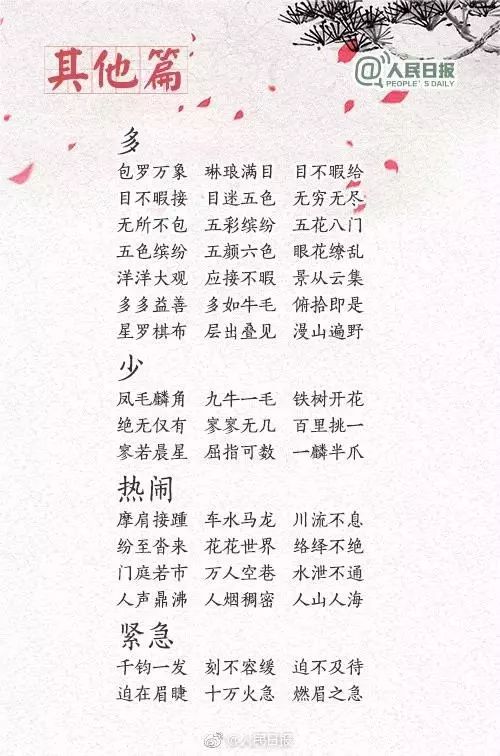 其他篇
@人民日报
PEOPLE'S DAILY
多
包罗万象 琳琅满目 目不暇给
目不暇接 目迷五色 无穷无尽
无所不包 五彩缤纷 五花八门
五色缤纷 五颜六色 眼花缭乱
洋洋大观 应接不暇 景从云集
多多益善 多如牛毛 俯拾即是
星罗棋布 层出叠见 漫山遍野
少
凤毛麟角 九牛一毛 铁树开花
绝无仅有 寥寥无几 百里挑一
寥若晨星 屈指可数 一麟半爪
热闹
摩肩接踵 车水马龙 川流不息
纷至沓来 花花世界 络绎不绝
门庭若市 万人空巷 水泄不通
人声鼎沸 人烟稠密 人山人海
紧急
千钧一发 刻不容缓 迫不及待
迫在眉睫 十万火急 燃眉之急
@人民日报